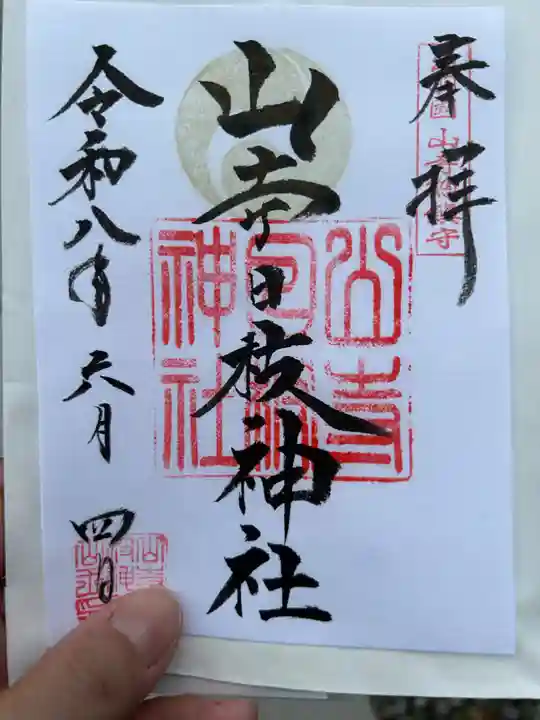 奉拝
山寺日枝神社
令和八年六月四日
山寺日枝神社